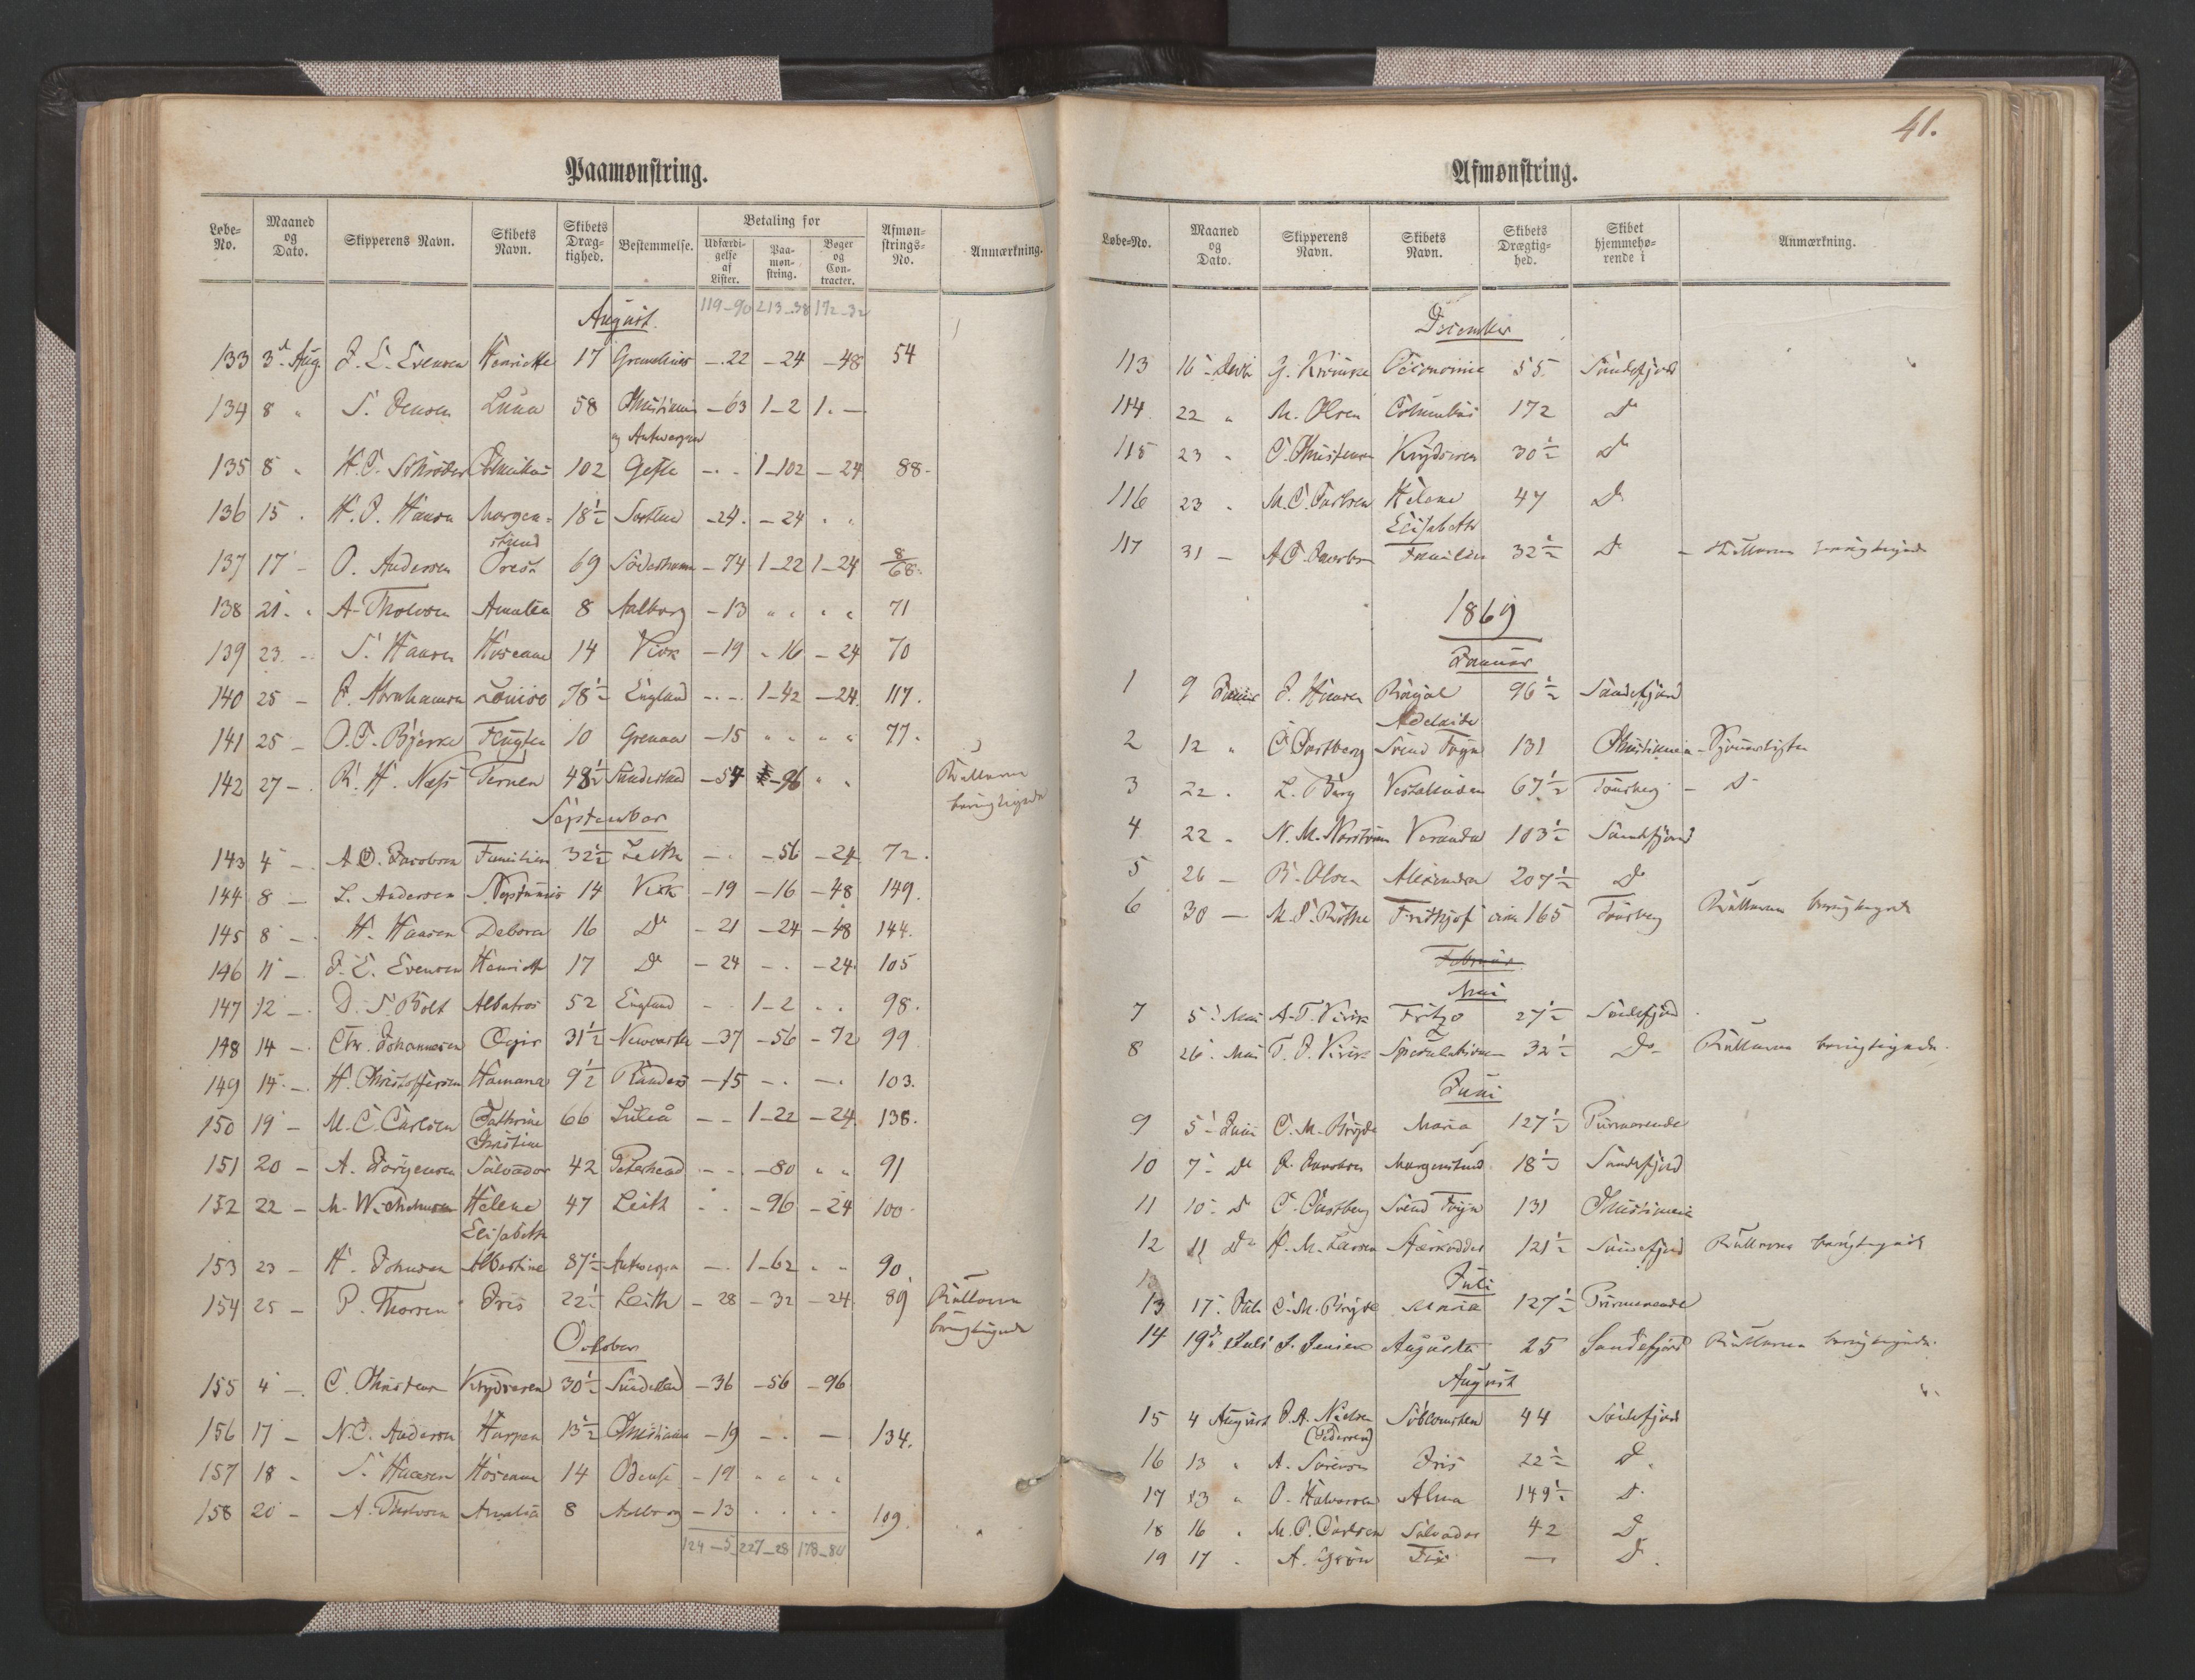 Paamønstring.
Løbe-No. Maaned og Dato. Skipperens Navn. Skibets Navn. Skibets Dræg-tighed. Bestemmelse. Betaling for Udfærdi-gelse af Lister. Paa-møn-string. Bøger og Con-tracter. Afmøn-strings-No. Anmærkning.
119-90 213-38 172-32
August.
133 3d Aug. J. E. Evensen Henriette 17 -.22 -24 -48 54
134 8 " S. Jensen Luna 58 Christiania -63 1-2 1.-
og Antwerpen
135 8 " H.C. Schrøder Columbus 102 Gefle -.- 1-102 -24 88-
136 15 . H. J. Hansen Morgen- 18½ -24. -24 " "
stund
137 17 - O. Andersen Orest 69 -74 1-22 1-24 8/68.
138 21. " A. Tholvsen Amalia 8 Aalborg -13 " " " " 71
139 23. - S. Hansen Hoseanne 14 Virk -19 -16 -24 70
140 25 - J. Abrahamsen Louise 78½ England -.-. 1-42 -24. 117.
141 25 - O.C. Bjerke Flugten 10 Grenaa -15 " " " " 77.
142 27 -. R. H. Næss Ternen 48½ Sunderland -54 -96 " " Rullerne
berigtigede
September
143 4 -. A.C. Jacobsen Familien 32½ Leith -. -56 -24 72.
144 8 - L. Andersen Neptunus 14 Virk -19 -16 -48 149.
145 8 -. H. Hansen Debora 16 Do -21 -24 -48 144.
146 11 -. J. E. Evensen Henriette 17 Do -24 -. -24. 105
147 12 -. D. S. Bolt Albatros 52 England - - 1-2 . . 98.
148 14 -. Chr. Johannesen Ægir 31½ Newcastle -37 -56 -72 99
149 14. -. H. Christoffersen Hamana 9½ Randers -15 -. -. 103.
150 19 - M. C. Carlsen Cathrine 66 Luleå - - 1-22 -24. 138.
Christine
151 20 - A. Jørgensen Salvador 42 Peterhead - - -80 " " 91
152 22 - M. Helene 47 Leith . . -96 -24 100.
Elisabeth
153 23 - H. Johnsen Albertine 87½ Antwerpen -. 1-62 . - 90
154 25 - P. Thorsen Iris 22½ Leith -28 -32 -24. 89 Rullerne
berigtigede
October
155 4 -. C. Christensen Krydseren 30½ Sunderland -36 -56 -96
156 17 - N.C. Andersen Harpen 13½ Christiania -19 -. - 134.
157 18 - S. Hansen Hoseanne 14 Odense -19 " " " "
158 20 - A. Tholvsen Amalia 8 Aalborg -13 . . . . 109.
124-5 227-28 178-80
41.
Afmønstring.
Løbe-No. Maaned og Dato. Skipperens Navn. Skibets Navn. Skibets Drægtig-hed. Skibet hjemmehø-rende i Anmærkning.
December
113 16 - Decbr Oeconomie 55 Sandefjord
114 22 " M. Olsen Columbus 172 Do
115 23 " C. Christensen Krydseren 30½ Do
116 23 " M.C. Carlsen Helene 47 Do
Elisabeth
117 31 - A.C. Jacobsen Familien 32½ Do - Rullerne berigtigede
1869
Januar
1 9 Januar J. Hansen Royal 96½ Sandefjord
Adelaide
2 12 " C. Castberg Svend Foyn 131 Christiania -
3 22 . L. Berg Vestalinden 67½ Tønsberg - Do
4 22 - N. M. Veranda 103½ Sandefjord
5 26 - R. Olsen Alexandra 207½ Do
6 30 - M. Fridthjof circa 165 Tønsberg Rullerne berigtigede
Februar
Mai
7 5. Mai A. T. Virik Fritzo 27½ Sandefjord
8 26. Mai T. J. Virik Speculation 32½ Do- Rullerne berigtigede.
Juni
9 5 - Juni C. M. Bryde Maria 127½
10 7 - Do J. Jacobsen Morgenstund 18½ Sandefjord
11 10 - Do C. Castberg Svend Foyn 131 Christiania
12 11 Do H. M. Larsen Stærkodder 121½ Sandefjord Rullerne berigtigede
Juli
13 17. Juli C. M. Bryde Maria 127½
14 19de Juli J. Jensen Augusta 25 Sandefjord Rullerne berigtigede.
August
15 4 August J. A. Nielsen Søblomsten 44 Sandefjord
(Pedersen)
16 13 " A. Sørensen Iris 22½ Do
17 13 " O. Halvorsen Alma 149½ Do
18 16 " M. C. Carlsen Salvador 42 Do
19 17 " A. Grøn Fix - Do